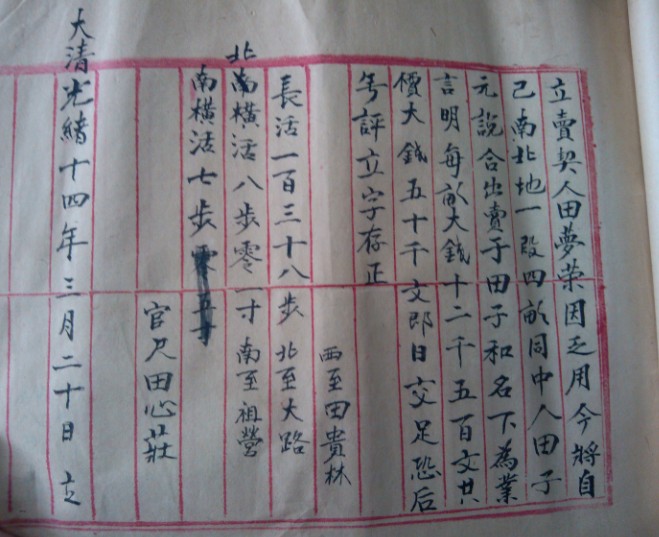 立賣契人田夢荣因乏用今將自
己南北地一段四畝同中人田子
元説合出賣于田子和名下為業
言明每畝大錢十二千五百文共
價大錢五十千文即日交足恐后
無評立字存正
西至田貴林
長活一百三十八步 北至大路
北南橫活八步零一寸 南至祖營
南橫活七步
官尺田心莊
大清光緒十四年三月二十日 立